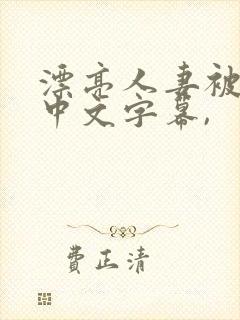 漂亮人妻被
中文字幕,
费正清